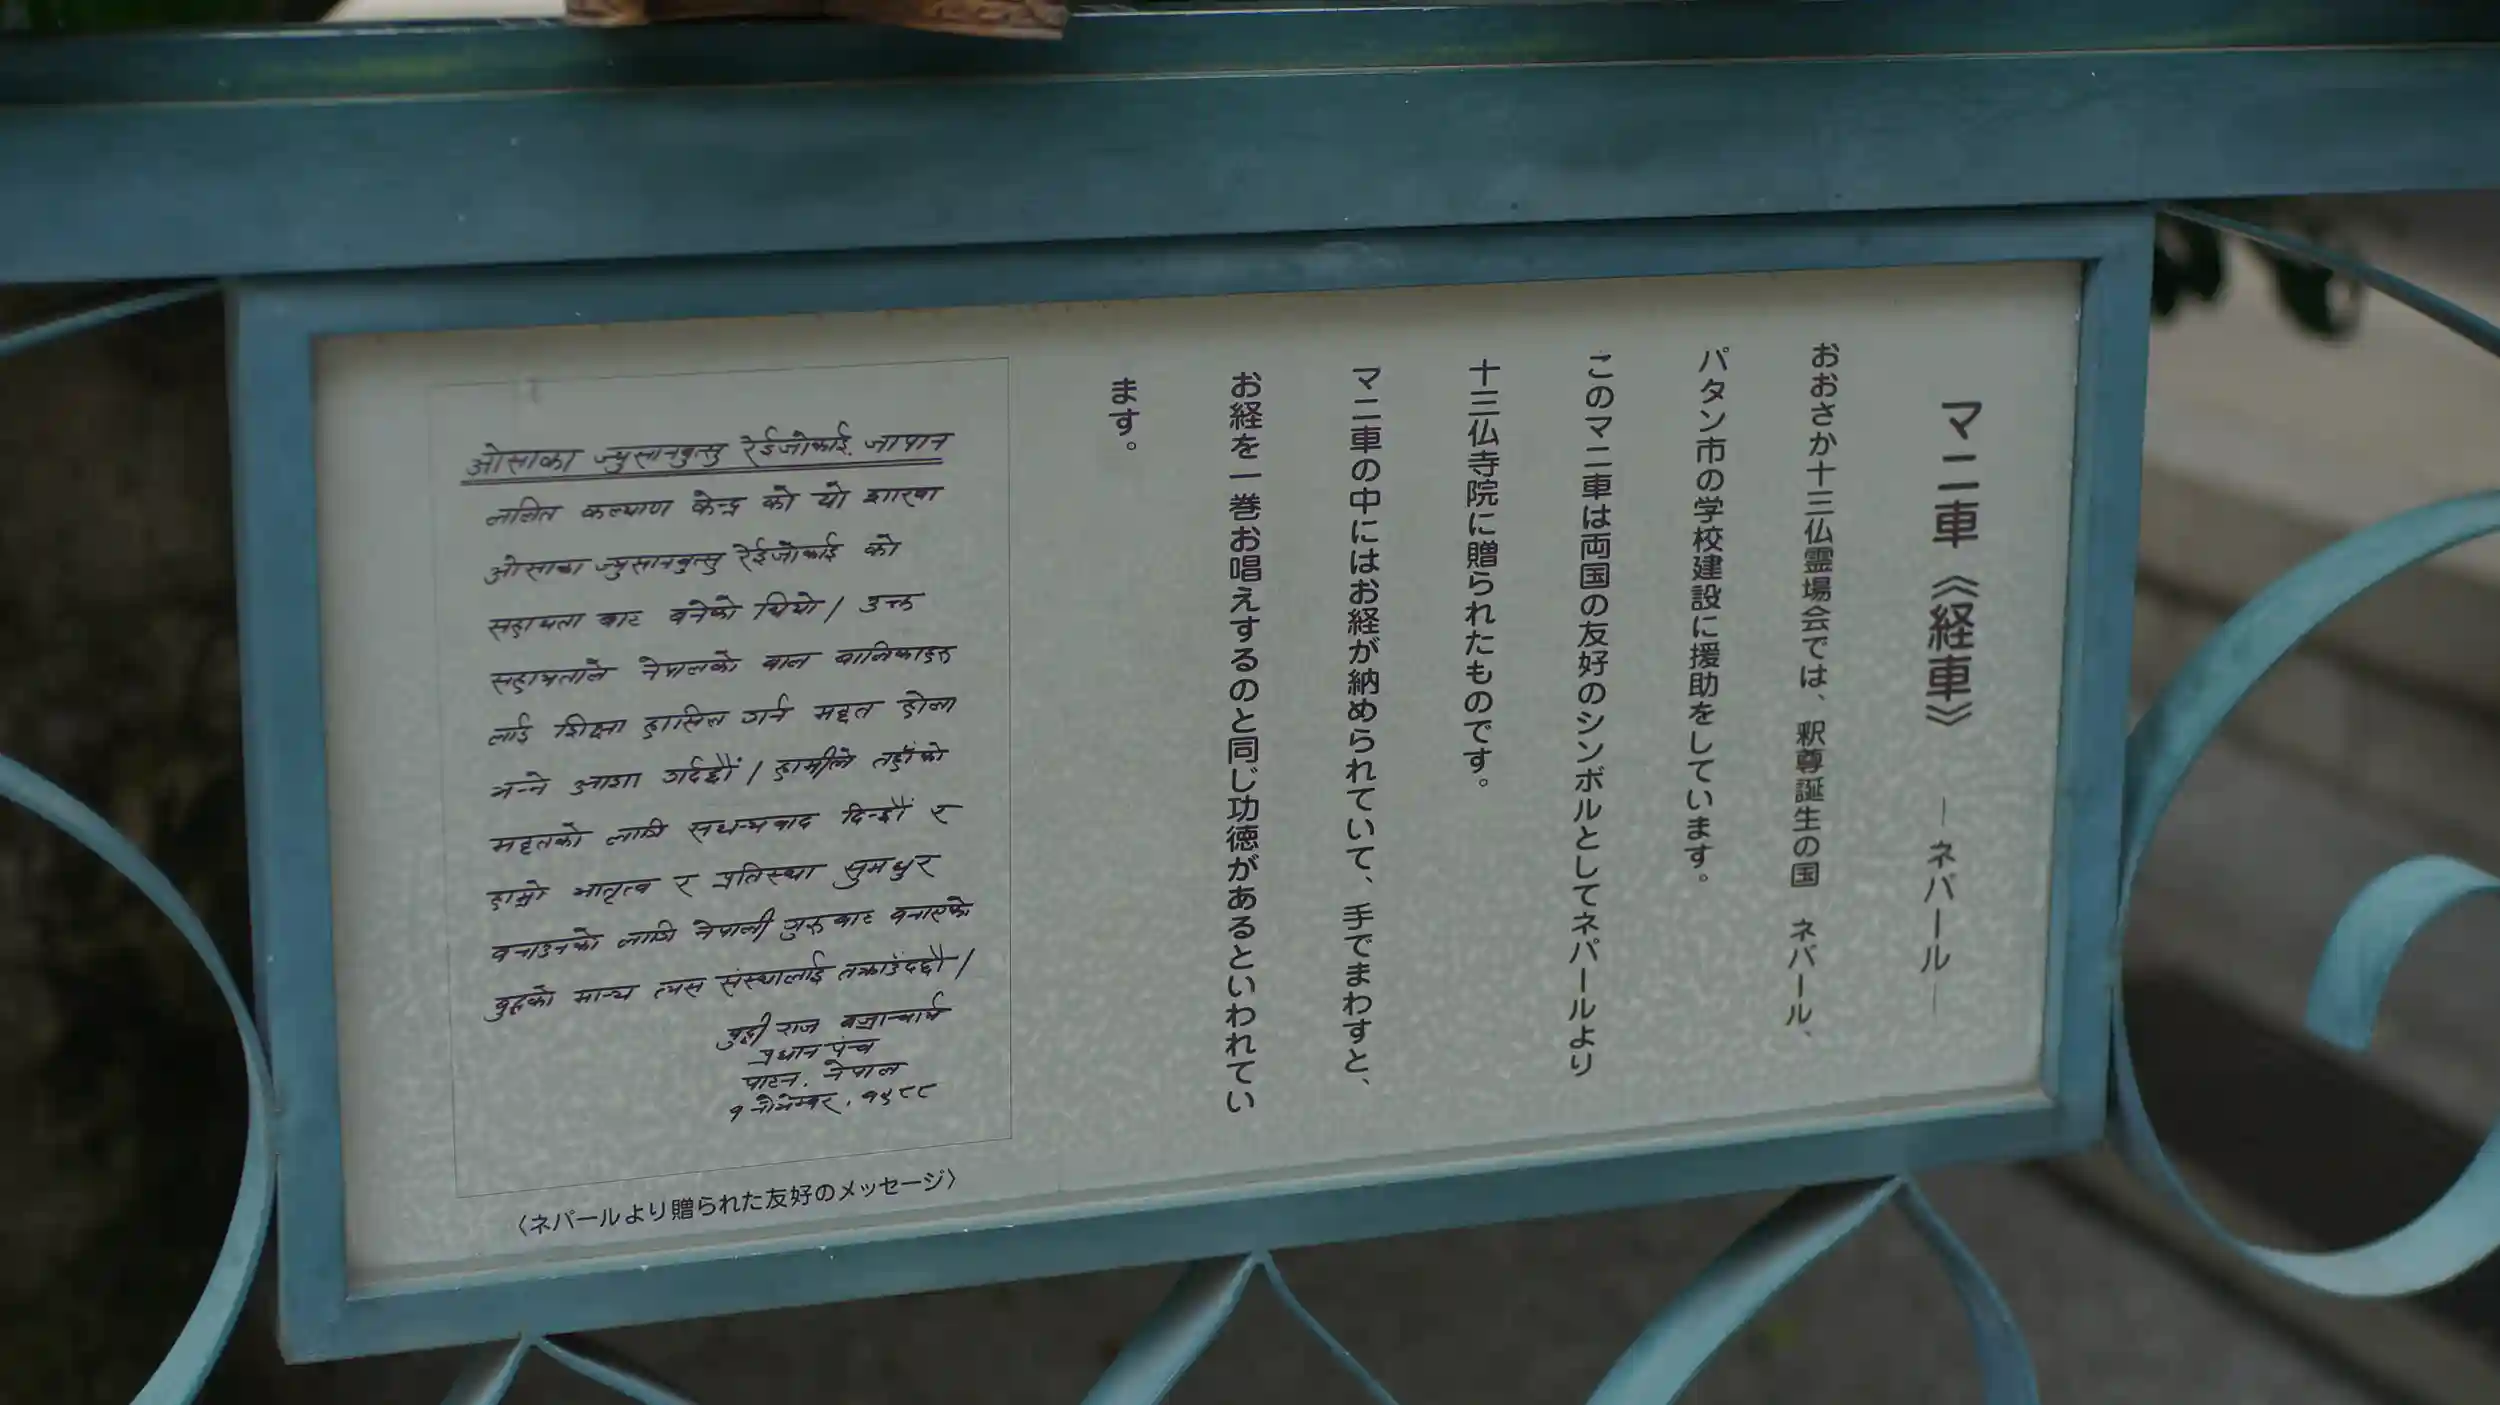 マニ車《経車》 ―ネパール―
おおさか十三仏霊場会では、釈尊誕生の国 ネパール、
パタン市の学校建設に援助をしています。
このマニ車は両国の友好のシンボルとしてネパールより
十三仏寺院に贈られたものです。
マニ車の中にはお経が納められていて、手でまわすと、
お経を一巻お唱えするのと同じ功徳があるといわれてい
ます。
ओसाका ज्युसानबुत्सु रेईजोकाई. जापान
ललित कल्याण केन्द्र को यो शाखा
ओसाका ज्युसानबुत्सु रेईजोकाई को
सहायता बाट बनेको थियो। उक्त
सहायताले नेपालको बाल बालिकाहरु
लाई शिक्षा हासिल गर्न मद्दत होला
भन्ने आशा गर्दछौं। हामीले तहाँको
मद्दतको लागि सधन्यवाद दिन्छौं र
हाम्रो भातृत्व र प्रतिस्था सुमधुर
बनाउनको लागि नेपाली गुरुबाट बनाएको
बुद्धको मान्य त्यस संस्थालाई तक्राउँदछौं।
बुद्धी राज बज्राचार्य
प्रधान पंच
पाटन. नेपाल
१ नोभेम्बर. १९८८
〈ネパールより贈られた友好のメッセージ〉